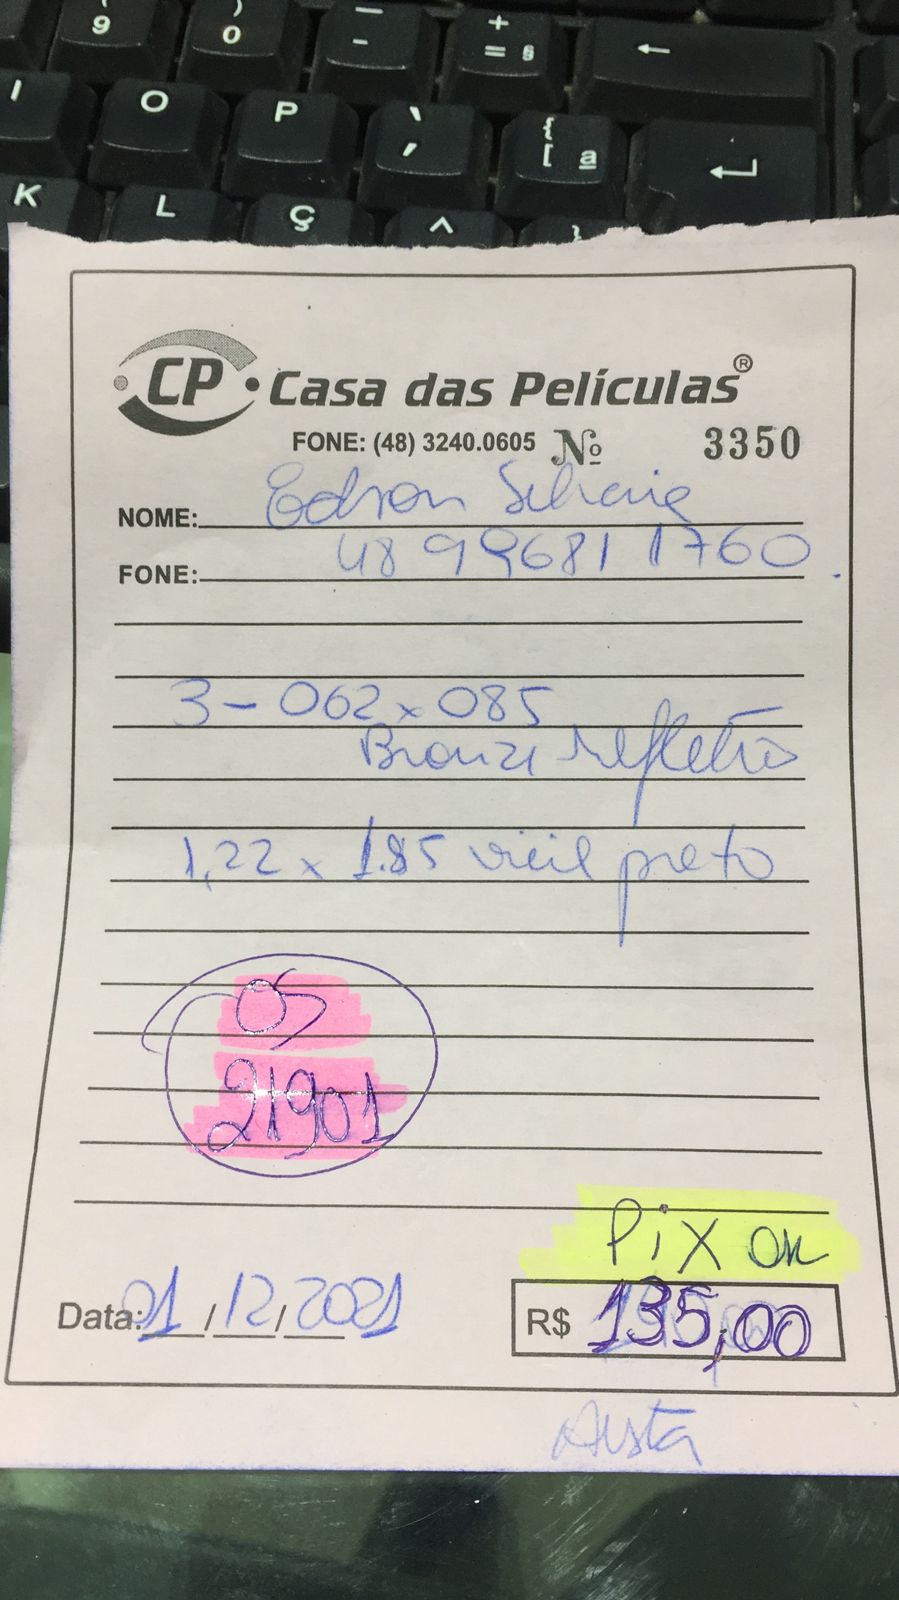 9 ) 0 — - + = §
I O P ` ´ { [ ª
K L Ç ^ }
CP Casa das Películas®
FONE: (48) 3240.0605 Nº 3350
NOME: Edson
FONE: 48 99681 1760
3 - 062 x 085
Bronze refletivo
1,22 x 1.85 vinil preto
OS
21901
Pix OK
Data: 01/12/2021 R$ 135,00